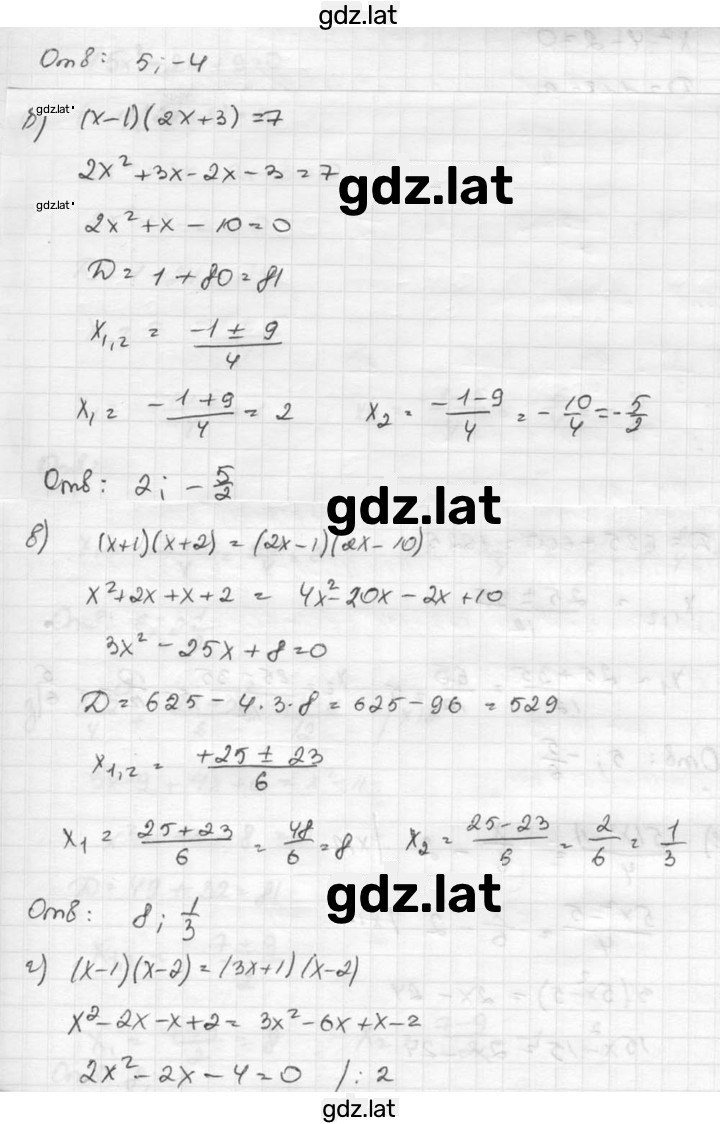 gdz.lat
Отв: 5; -4
gdz.lat
б) (x-1)(2x+3) = 7
2x² + 3x - 2x - 3 = 7
gdz.lat
gdz.lat
2x² + x - 10 = 0
D = 1 + 80 = 81
x₁,₂ = (-1 ± 9)/4
x₁ = (-1+9)/4 = 2 x₂ = (-1-9)/4 = -10/4 = -5/2
Отв: 2; -5/2
gdz.lat
в) (x+1)(x+2) = (2x-1)(2x-10)
x² + 2x + x + 2 = 4x² - 20x - 2x + 10
3x² - 25x + 8 = 0
D = 625 - 4·3·8 = 625 - 96 = 529
x₁,₂ = (+25 ± 23)/6
x₁ = (25+23)/6 = 48/6 = 8 x₂ = (25-23)/6 = 2/6 = 1/3
gdz.lat
Отв: 8; 1/3
г) (x-1)(x-2) = (3x+1)(x-2)
x² - 2x - x + 2 = 3x² - 6x + x - 2
2x² - 2x - 4 = 0 /: 2
gdz.lat